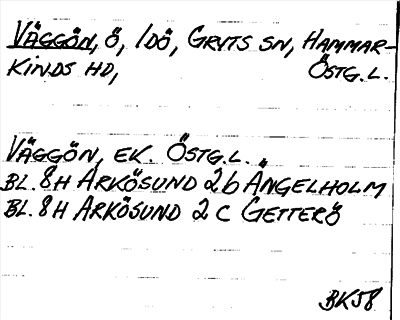 VÄGGÖN, Ö, IDÖ, GRYTS SN, HAMMAR-
KINDS HD, ÖSTG. L.
VÄGGÖN, EK. ÖSTG. L.
BL. 8H ARKÖSUND 2b ÄNGELHOLM
BL. 8H ARKÖSUND 2C GETTERÖ
BK58